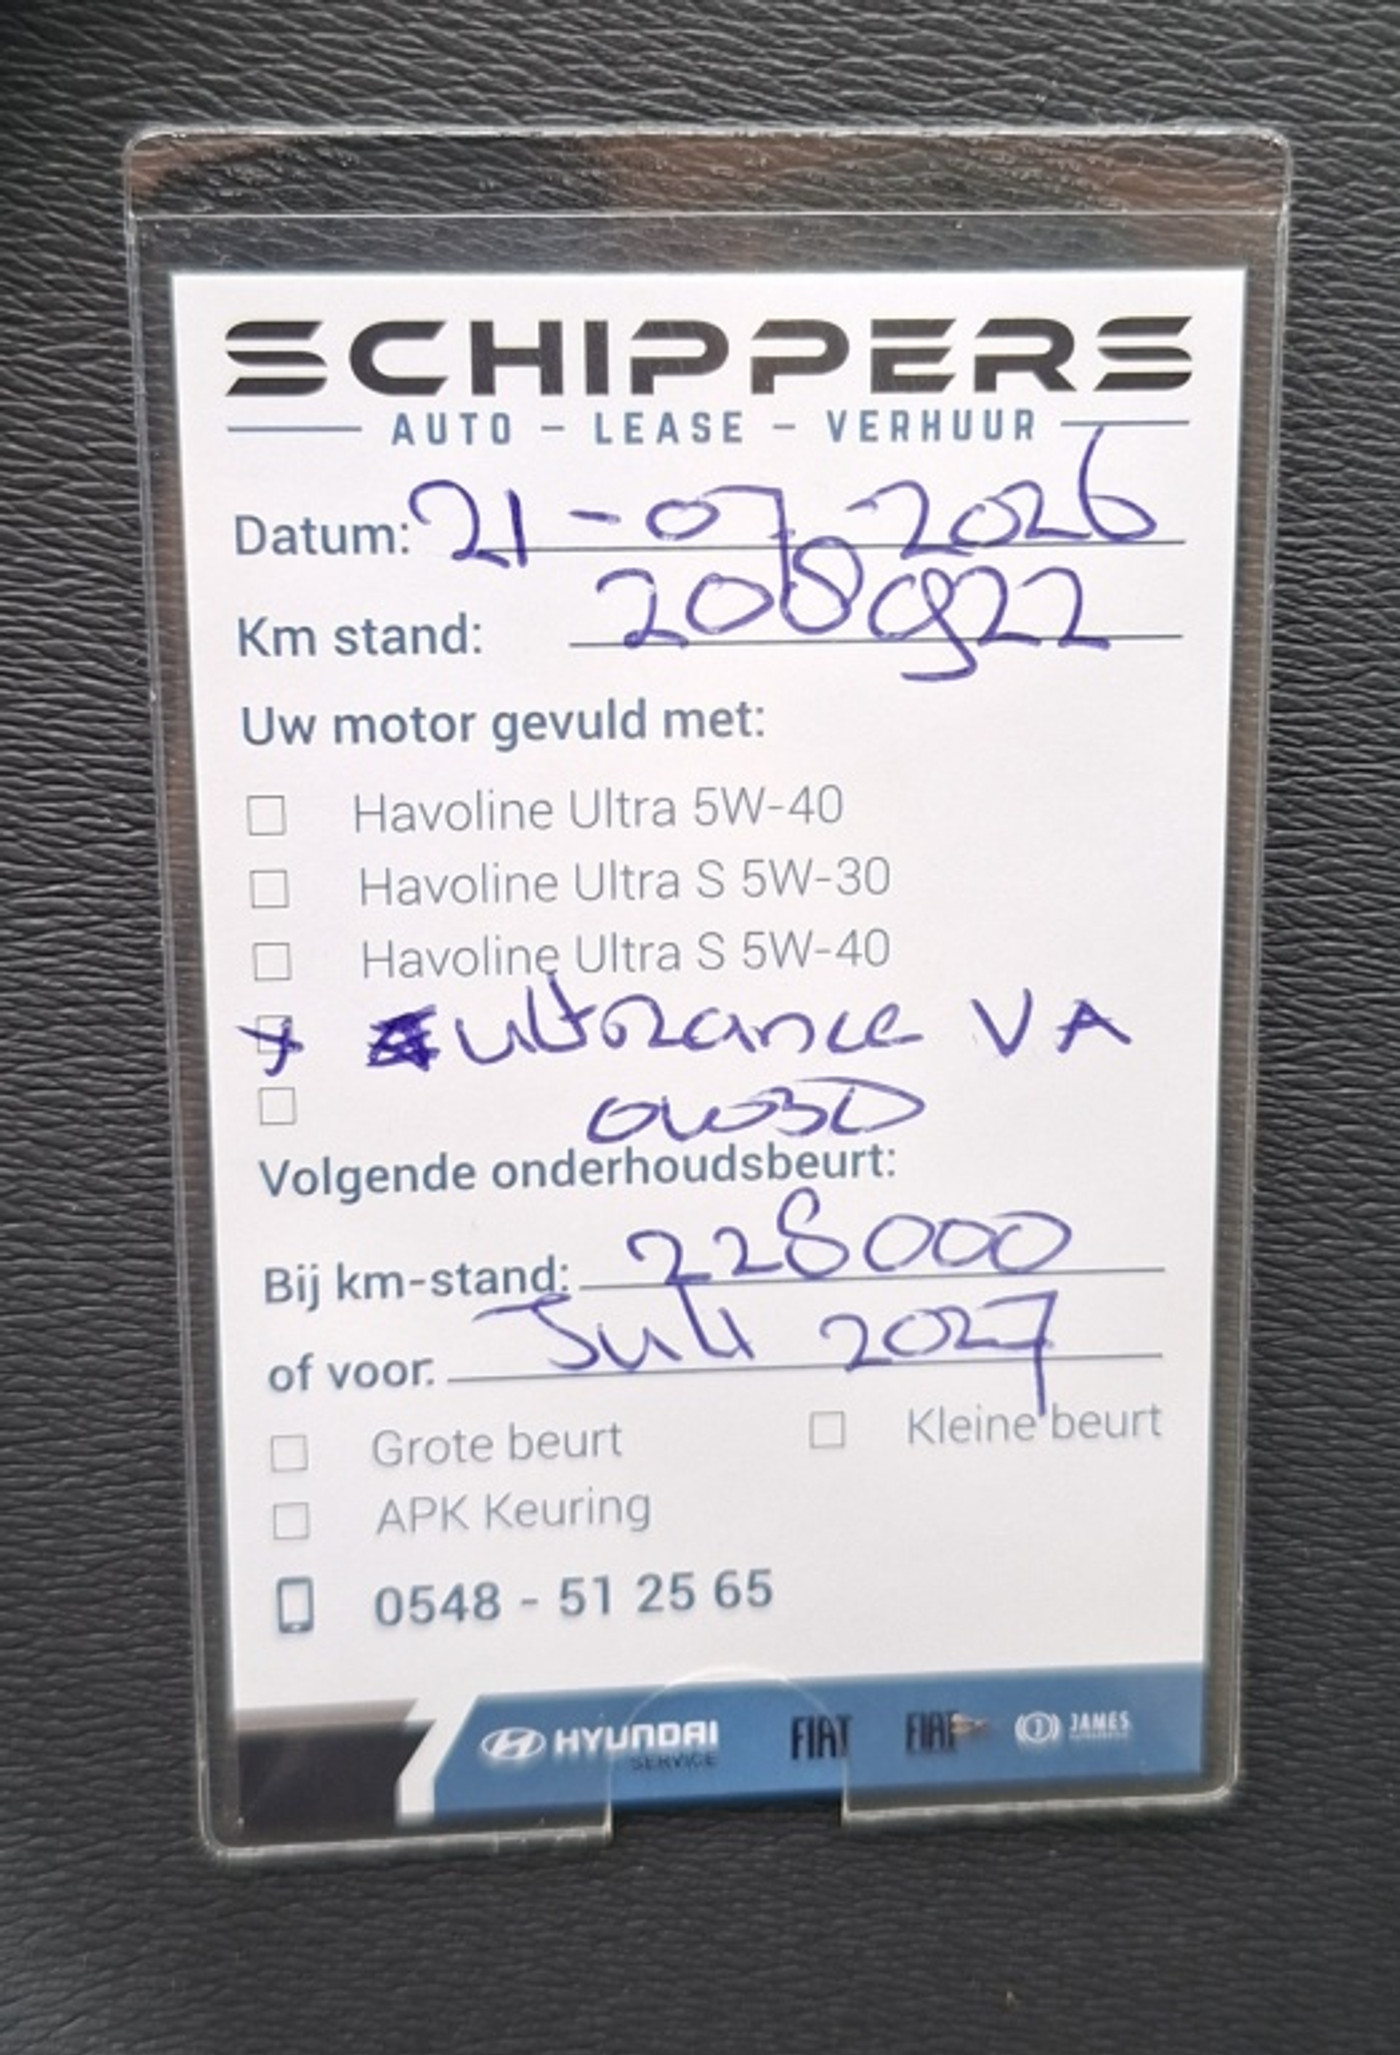 SCHIPPERS
AUTO – LEASE – VERHUUR
Datum: 21-07-2026
Km stand: 208922
Uw motor gevuld met:
Havoline Ultra 5W-40
Havoline Ultra S 5W-30
Havoline Ultra S 5W-40
x ultrance VA
0W30
Volgende onderhoudsbeurt:
Bij km-stand: 228000
of voor: Juli 2027
Grote beurt Kleine beurt
APK Keuring
0548 - 51 25 65
HYUNDAI FIAT FIAT JAMES
SERVICE